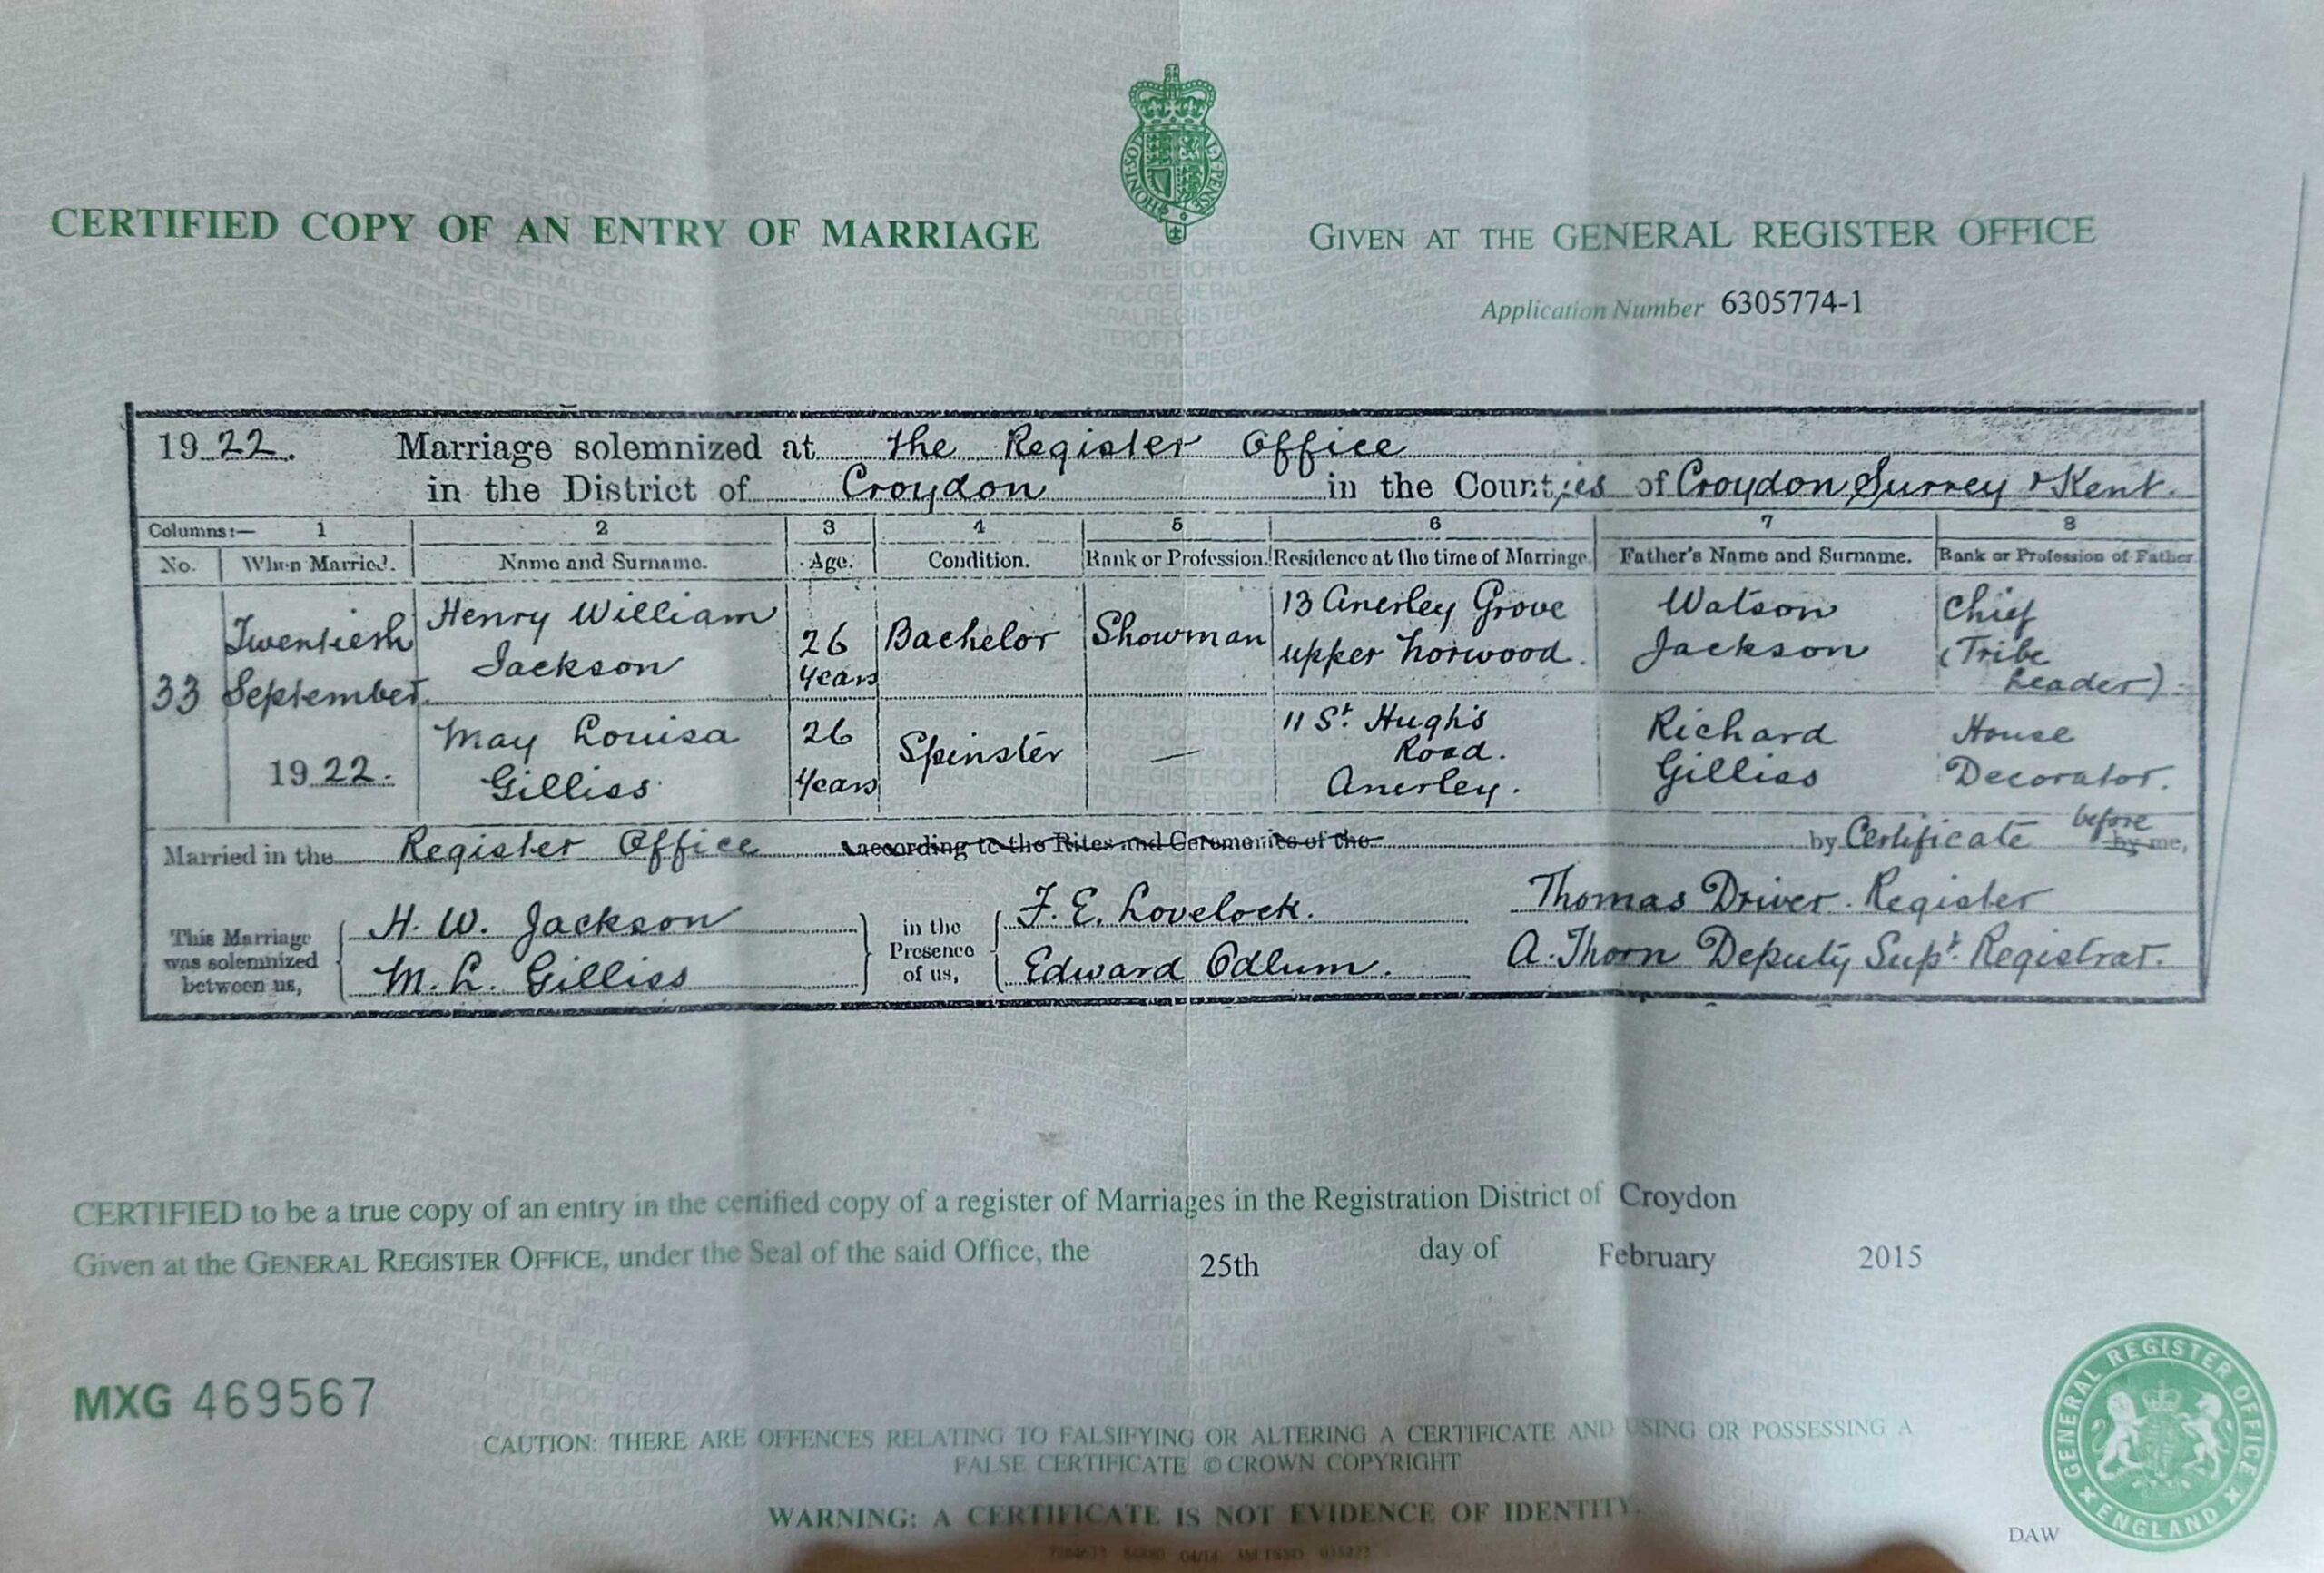 HONI·SOIT
Y·PENSE
CERTIFIED COPY OF AN ENTRY OF MARRIAGE
GIVEN AT THE GENERAL REGISTER OFFICE
Application Number 6305774-1
1922. Marriage solemnized at the Register Office
in the District of Croydon in the Counties of Croydon Surrey & Kent.
Columns:— 1 2 3 4 5 6 7 8
No. When Married. Name and Surname. Age. Condition. Rank or Profession. Residence at the time of Marriage. Father's Name and Surname. Rank or Profession of Father
33
Twentieth
September
1922.
Henry William
Jackson
26
years
Bachelor
Showman
13 Anerley Grove
upper Norwood.
Watson
Jackson
Chief
(Tribe
Leader)
May Louisa
Gilliss
26
years
Spinster
—
11 St. Hugh's
Road.
Anerley.
Richard
Gilliss
House
Decorator.
Married in the Register Office according to the Rites and Ceremonies of the by Certificate before by me,
This Marriage
was solemnized
between us,
H. W. Jackson
M. L. Gilliss
in the
Presence
of us,
F. E. Lovelock.
Edward Odlum.
Thomas Driver. Register
A. Thorn Deputy Supt Registrar.
CERTIFIED to be a true copy of an entry in the certified copy of a register of Marriages in the Registration District of Croydon
Given at the GENERAL REGISTER OFFICE, under the Seal of the said Office, the 25th day of February 2015
MXG 469567
CAUTION: THERE ARE OFFENCES RELATING TO FALSIFYING OR ALTERING A CERTIFICATE AND USING OR POSSESSING A
FALSE CERTIFICATE © CROWN COPYRIGHT
WARNING: A CERTIFICATE IS NOT EVIDENCE OF IDENTITY.
GENERAL REGISTER OFFICE
ENGLAND
DAW